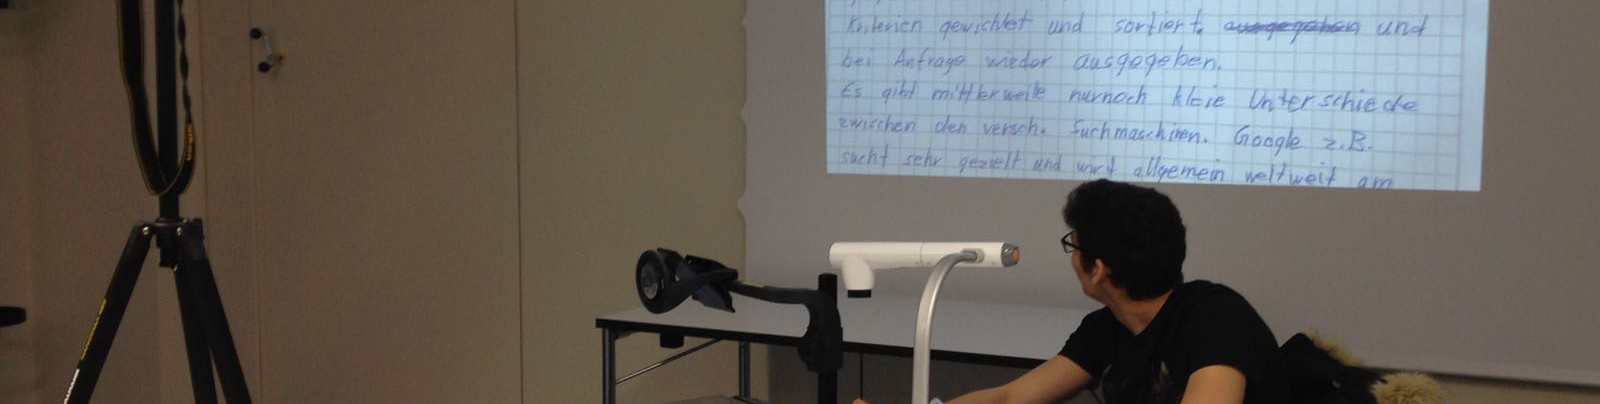 Kriterien gewichtet und sortiert. ausgegeben und
bei Anfrage wieder ausgegeben.
Es gibt mittlerweile nurnoch kleie Unterschiede
zwischen den versch. Suchmaschinen. Google z.B.
sucht sehr gezielt und wird allgemein weltweit am